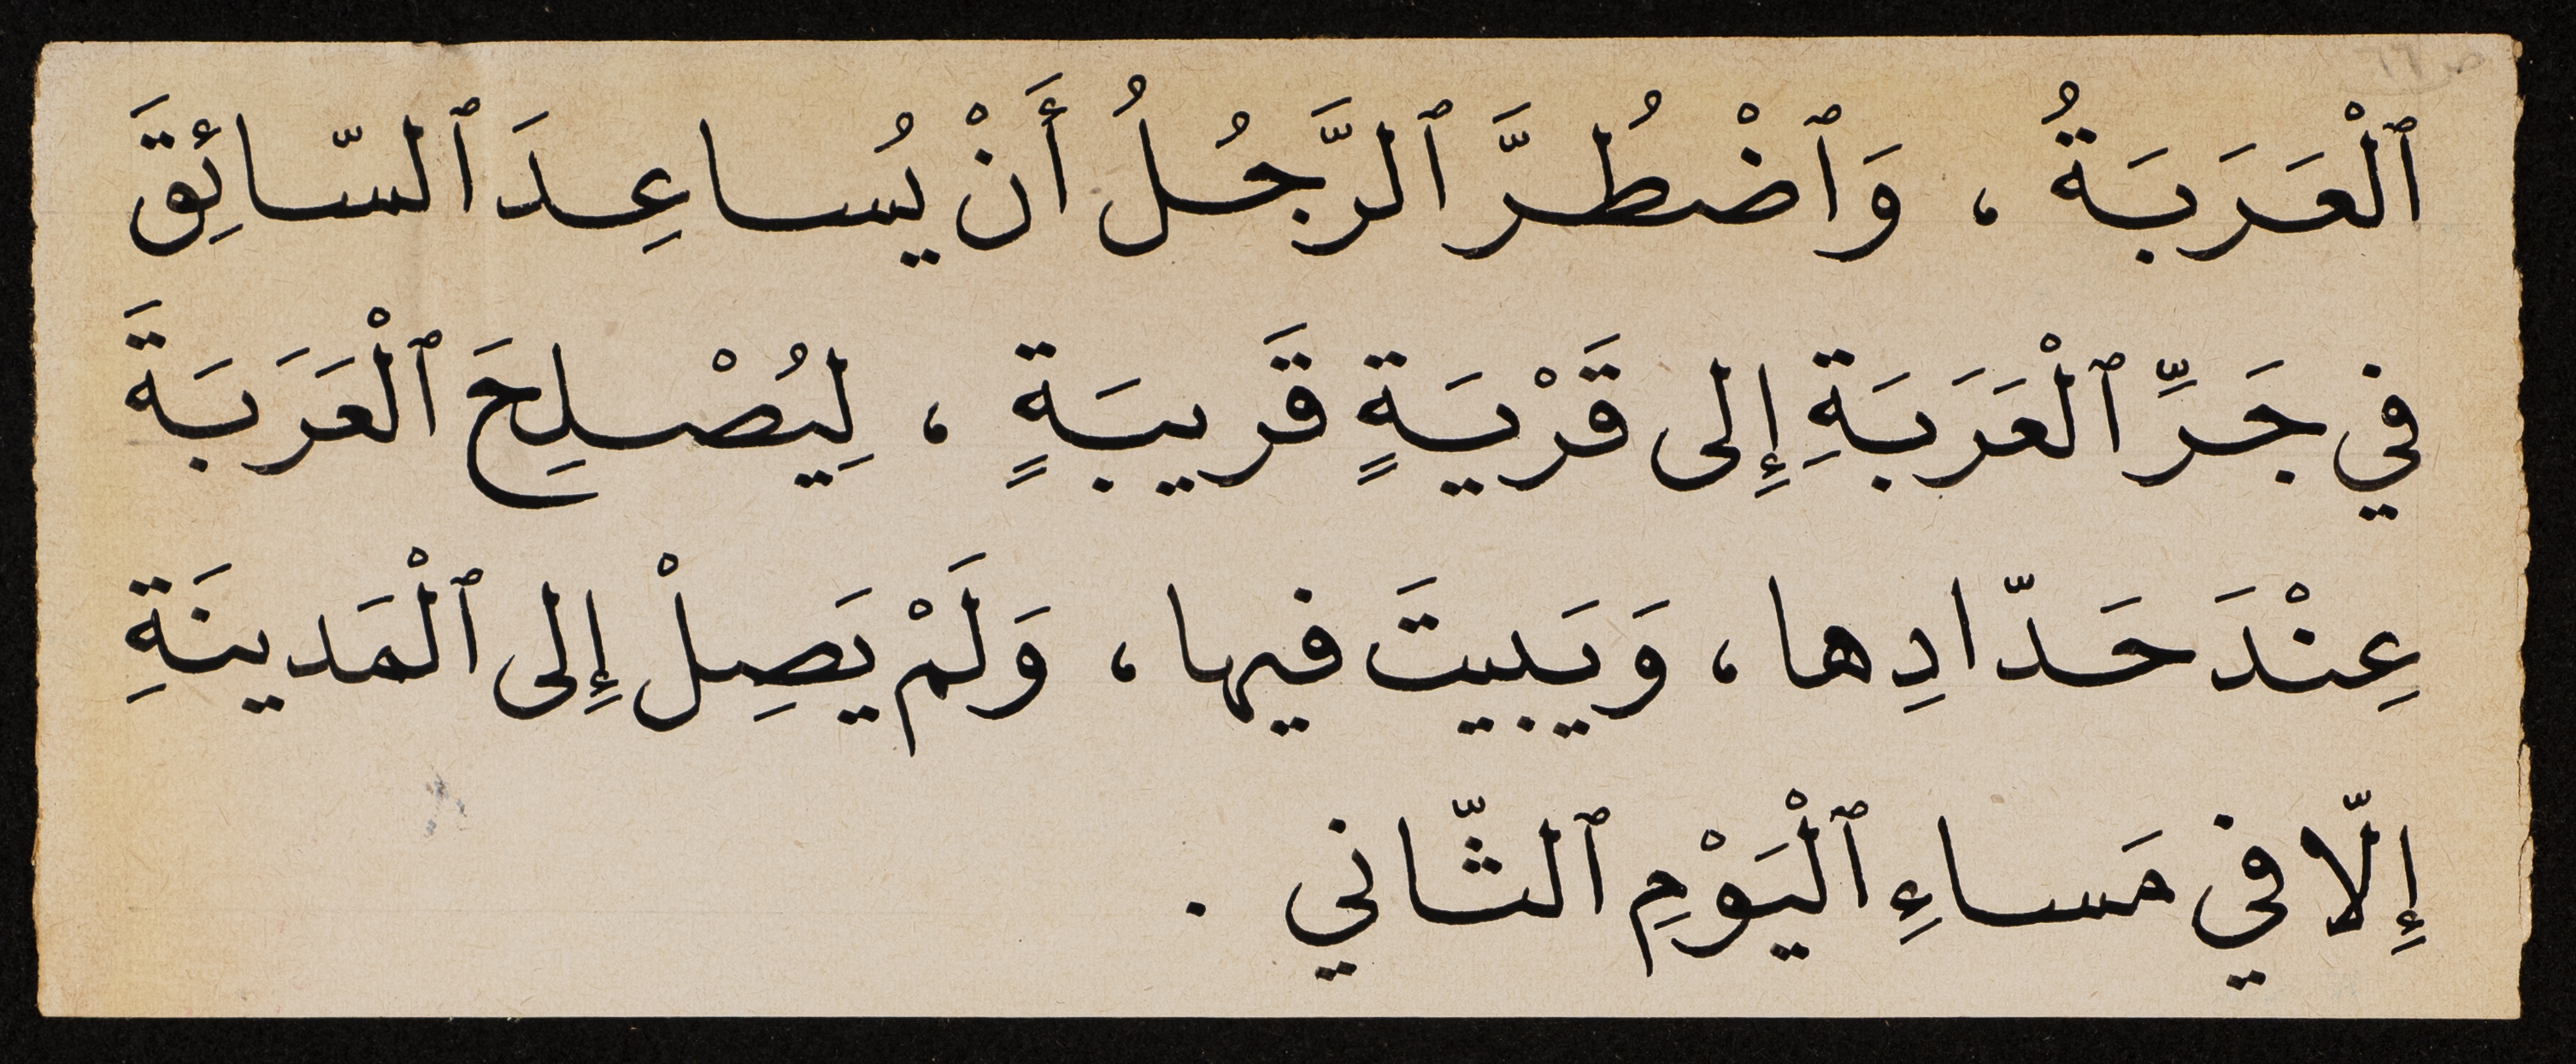 ٱلْعَرَبَةُ ، وَٱضْطُرَّ ٱلرَّجُلُ أَنْ يُساعِدَ ٱلسّائِقَ
في جَرِّ ٱلْعَرَبَةِ إِلى قَرْيَةٍ قَريبَةٍ ، لِيُصْلِحَ ٱلْعَرَبَةَ
عِنْدَ حَدّادِها ، وَيَبيتَ فيها ، وَلَمْ يَصِلْ إِلى ٱلْمَدينَةِ
إِلّا في مَساءِ ٱلْيَوْمِ ٱلثّاني .